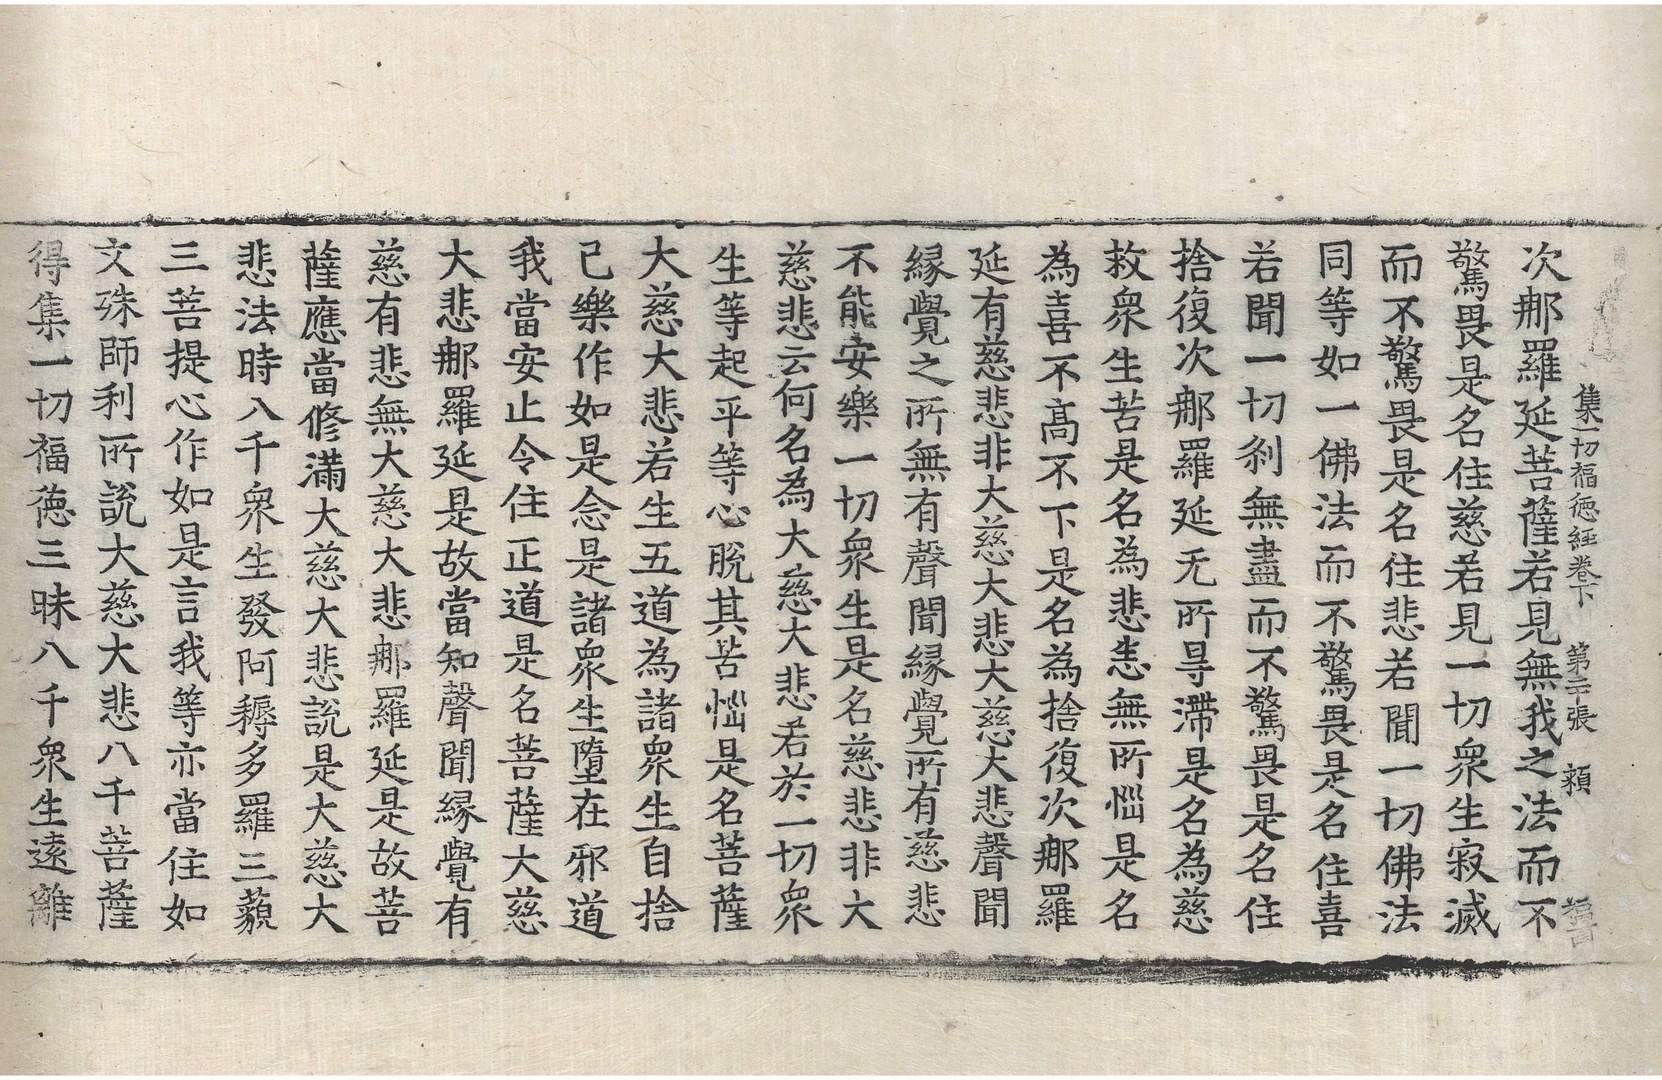 集一切福德經卷下　第二十張　賴
次那羅延菩薩若見無我之法而不
驚畏是名住慈若見一切衆生寂滅
而不驚畏是名住悲若聞一切佛法
同等如一佛法而不驚畏是名住喜
若聞一切刹無盡而不驚畏是名住
捨復次那羅延无所㝵滯是名為慈
救衆生苦是名為悲恚無所惱是名
為喜不高不下是名為捨復次那羅
延有慈悲非大慈大悲大慈大悲聲聞
縁覺之所無有聲聞縁覺所有慈悲
不能安樂一切衆生是名慈悲非大
慈悲云何名為大慈大悲若於一切衆
生等起平等心脫其苦惱是名菩薩
大慈大悲若生五道為諸衆生自捨
己樂作如是念是諸衆生墮在邪道
我當安止令住正道是名菩薩大慈
大悲那羅延是故當知聲聞縁覺有
慈有悲無大慈大悲那羅延是故菩
薩應當修滿大慈大悲說是大慈大
悲法時八千衆生發阿耨多羅三藐
三菩提心作如是言我等亦當住如
文殊師利所說大慈大悲八千菩薩
得集一切福德三昧八千衆生遠離